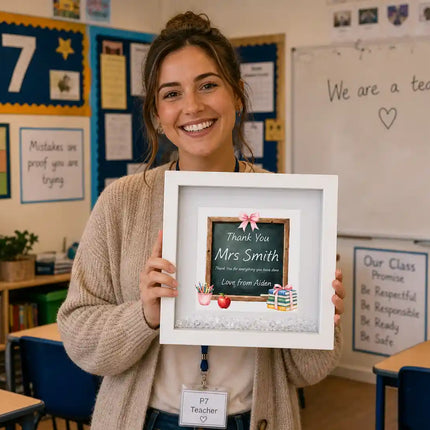 7
Mistakes are
proof you are
trying.
We are a tea
♡
Thank You
Mrs Smith
Thank You for everything you have done
Love from Aiden
Our Class
Promise
Be Respectful
Be Responsible
Be Ready
Be Safe
P7
Teacher
♡